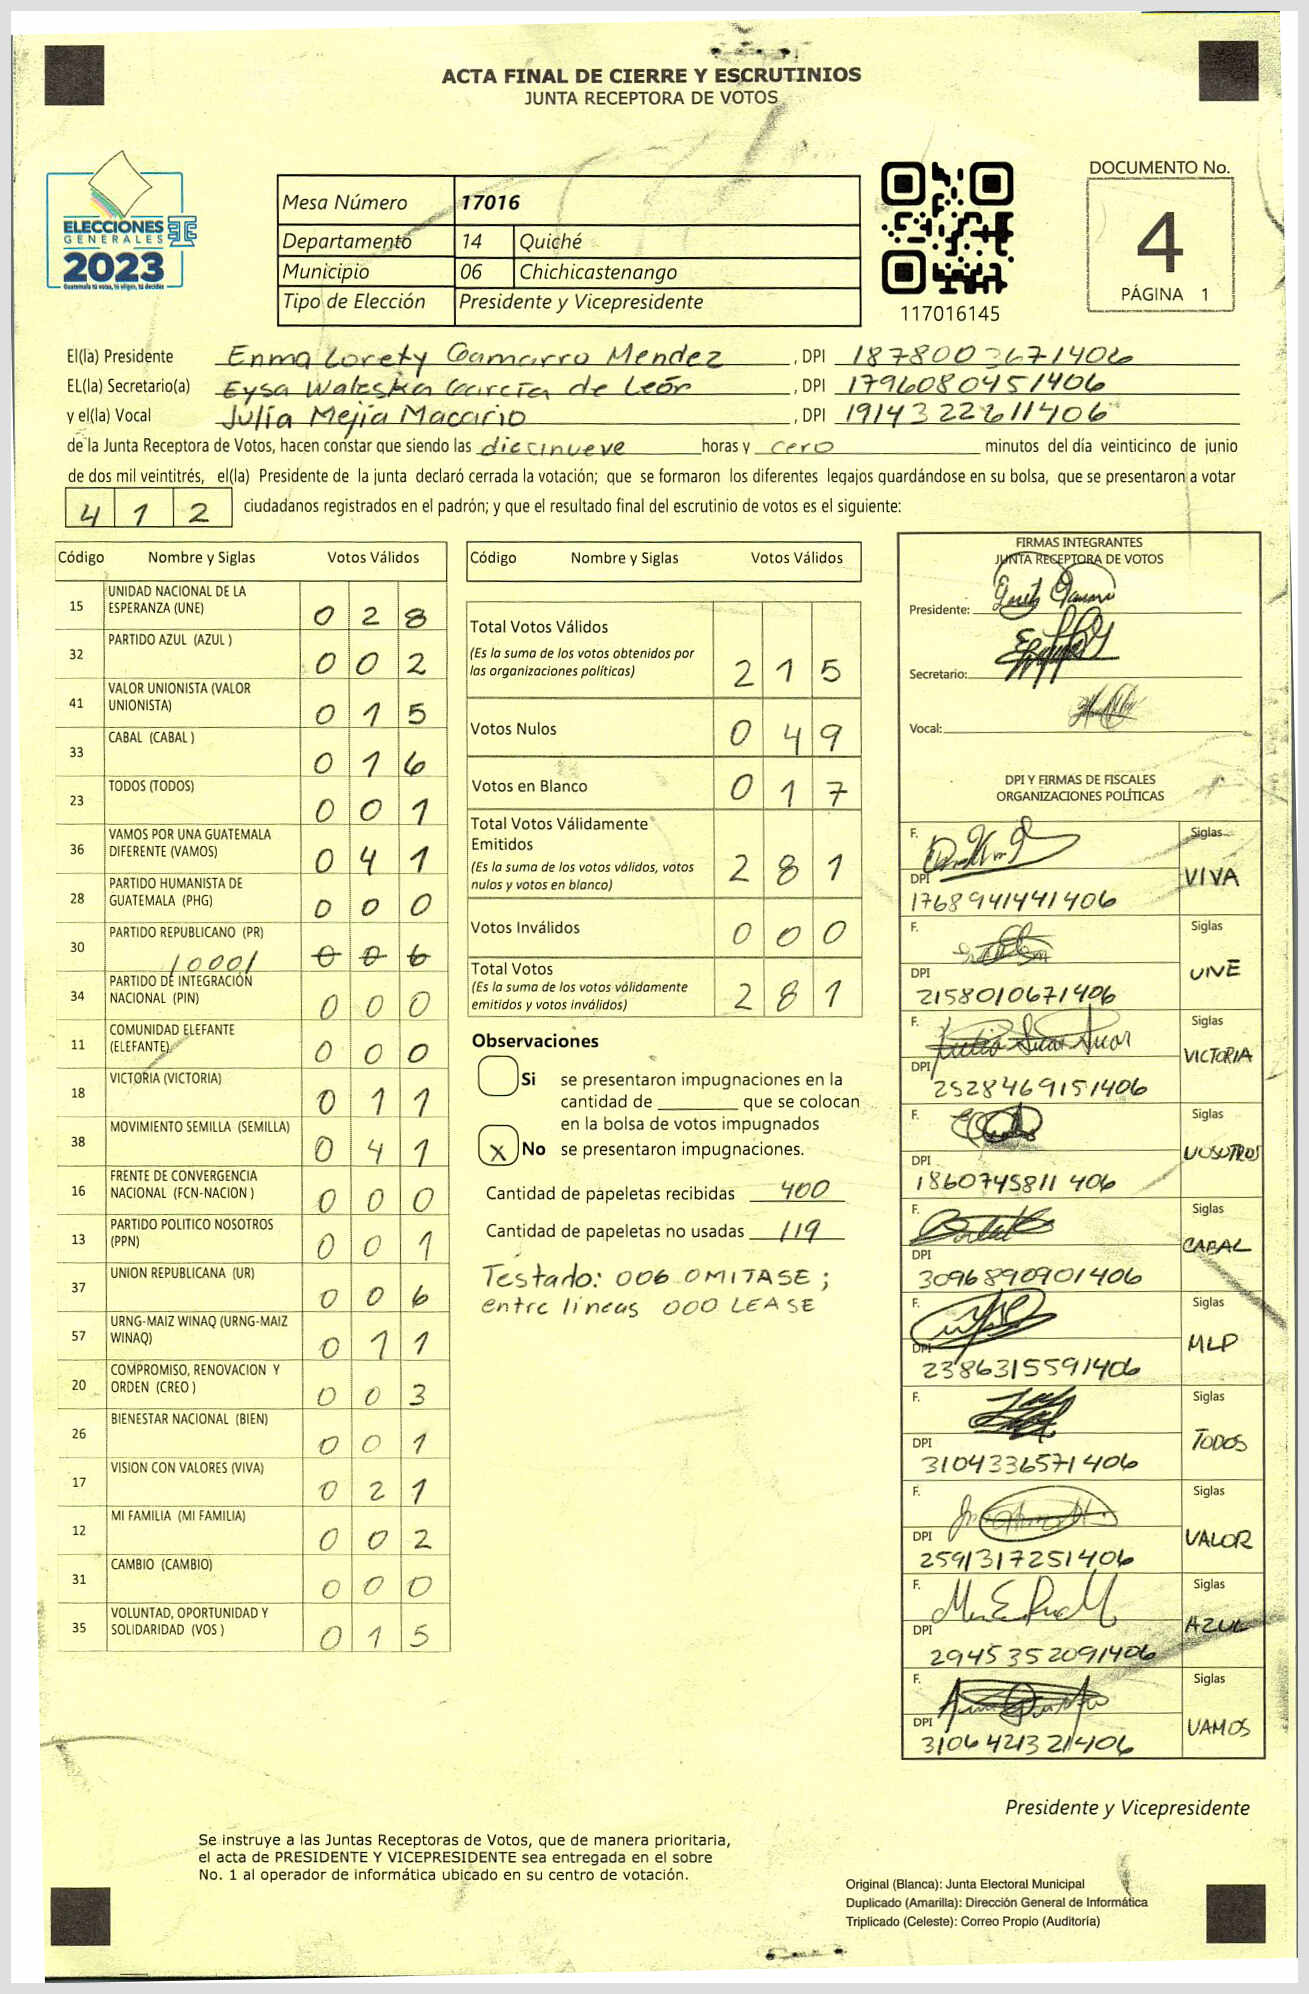 ACTA FINAL DE CIERRE Y ESCRUTINIOS
JUNTA RECEPTORA DE VOTOS
DOCUMENTO No.
4
PÁGINA 1
ELECCIONES
GENERALES
2023
Guatemala tú votas, tú eliges, tú decides
Mesa Número 17016
Departamento 14 Quiché
Municipio 06 Chichicastenango
Tipo de Elección Presidente y Vicepresidente
117016145
El(la) Presidente Enma Lorety Gamarro Mendez , DPI 1878003671406
EL(la) Secretario(a) Eysa Waleska García de León , DPI 1796080451406
y el(la) Vocal Julía Mejía Macario , DPI 1914322611406
de la Junta Receptora de Votos, hacen constar que siendo las diecinueve horas y cero minutos del día veinticinco de junio
de dos mil veintitrés, el(la) Presidente de la junta declaró cerrada la votación; que se formaron los diferentes legajos guardándose en su bolsa, que se presentaron a votar
412 ciudadanos registrados en el padrón; y que el resultado final del escrutinio de votos es el siguiente:
Código Nombre y Siglas Votos Válidos
15 UNIDAD NACIONAL DE LA
ESPERANZA (UNE) 028
32 PARTIDO AZUL (AZUL ) 002
41 VALOR UNIONISTA (VALOR
UNIONISTA) 015
33 CABAL (CABAL ) 016
23 TODOS (TODOS) 001
36 VAMOS POR UNA GUATEMALA
DIFERENTE (VAMOS) 041
28 PARTIDO HUMANISTA DE
GUATEMALA (PHG) 000
30 PARTIDO REPUBLICANO (PR) 006
/000/
34 PARTIDO DE INTEGRACIÓN
NACIONAL (PIN) 000
11 COMUNIDAD ELEFANTE
(ELEFANTE) 000
18 VICTORIA (VICTORIA) 011
38 MOVIMIENTO SEMILLA (SEMILLA) 041
16 FRENTE DE CONVERGENCIA
NACIONAL (FCN-NACION ) 000
13 PARTIDO POLITICO NOSOTROS
(PPN) 001
37 UNION REPUBLICANA (UR) 006
57 URNG-MAIZ WINAQ (URNG-MAIZ
WINAQ) 011
20 COMPROMISO, RENOVACION Y
ORDEN (CREO ) 003
26 BIENESTAR NACIONAL (BIEN) 001
17 VISION CON VALORES (VIVA) 021
12 MI FAMILIA (MI FAMILIA) 002
31 CAMBIO (CAMBIO) 000
35 VOLUNTAD, OPORTUNIDAD Y
SOLIDARIDAD (VOS ) 015
Código Nombre y Siglas Votos Válidos
Total Votos Válidos
(Es la suma de los votos obtenidos por
las organizaciones políticas) 215
Votos Nulos 049
Votos en Blanco 017
Total Votos Válidamente
Emitidos
(Es la suma de los votos válidos, votos
nulos y votos en blanco) 281
Votos Inválidos 000
Total Votos
(Es la suma de los votos válidamente
emitidos y votos inválidos) 281
Observaciones
Si se presentaron impugnaciones en la
cantidad de ________ que se colocan
en la bolsa de votos impugnados
X No se presentaron impugnaciones.
Cantidad de papeletas recibidas 400
Cantidad de papeletas no usadas 119
Testado: 006 OMITASE ;
entre líneas 000 LEASE
FIRMAS INTEGRANTES
JUNTA RECEPTORA DE VOTOS
Presidente:
Secretario:
Vocal:
DPI Y FIRMAS DE FISCALES
ORGANIZACIONES POLÍTICAS
F. Siglas
DPI VIVA
1768941441406
F. Siglas
DPI UNE
2158010671406
F. Siglas
DPI VICTORIA
2528469151406
F. Siglas
DPI NOSOTROS
1860745811406
F. Siglas
DPI CABAL
3096890901406
F. Siglas
DPI MLP
2386315591406
F. Siglas
DPI TODOS
3104336571406
F. Siglas
DPI VALOR
2591317251406
F. Siglas
DPI AZUL
2945352091406
F. Siglas
DPI VAMOS
3106421321406
Presidente y Vicepresidente
Se instruye a las Juntas Receptoras de Votos, que de manera prioritaria,
el acta de PRESIDENTE Y VICEPRESIDENTE sea entregada en el sobre
No. 1 al operador de informática ubicado en su centro de votación.
Original (Blanca): Junta Electoral Municipal
Duplicado (Amarilla): Dirección General de Informática
Triplicado (Celeste): Correo Propio (Auditoría)